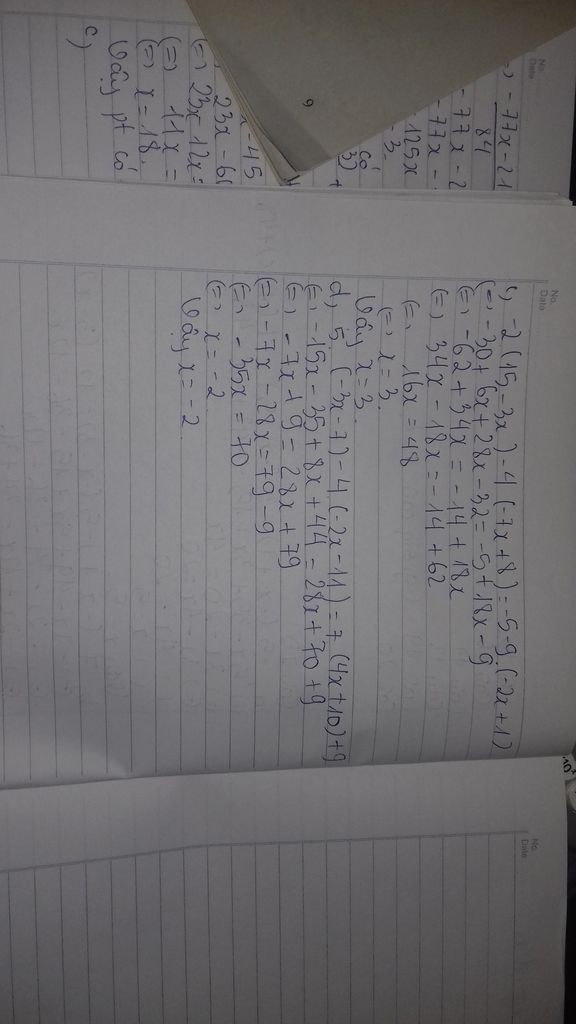 No.
Date
-77x-21
84
-77x-2
-77x-
125x
-3
có
x-45
23x-6
(=) 23x 12x=
(=) 11x=
(=) x=18.
Vậy pt có
c)
9
No.
Date
c, -2(15-3x)-4(-7x+8)=-5-9.(-2x+1)
(=) -30+6x+28x-32=-5+18x-9
(=) -62+34x=-14+18x
(=) 34x-18x=-14+62
(=) 16x=48
(=) x=3.
Vậy x=3.
d, 5.(-3x-7)-4(-2x-11)=7(4x+10)+9
(=) -15x-35+8x+44=28x+70+9
(=) -7x+9=28x+79
(=) -7x-28x=79-9
(=) -35x=70
(=) x=-2
Vậy x=-2
No.
Date